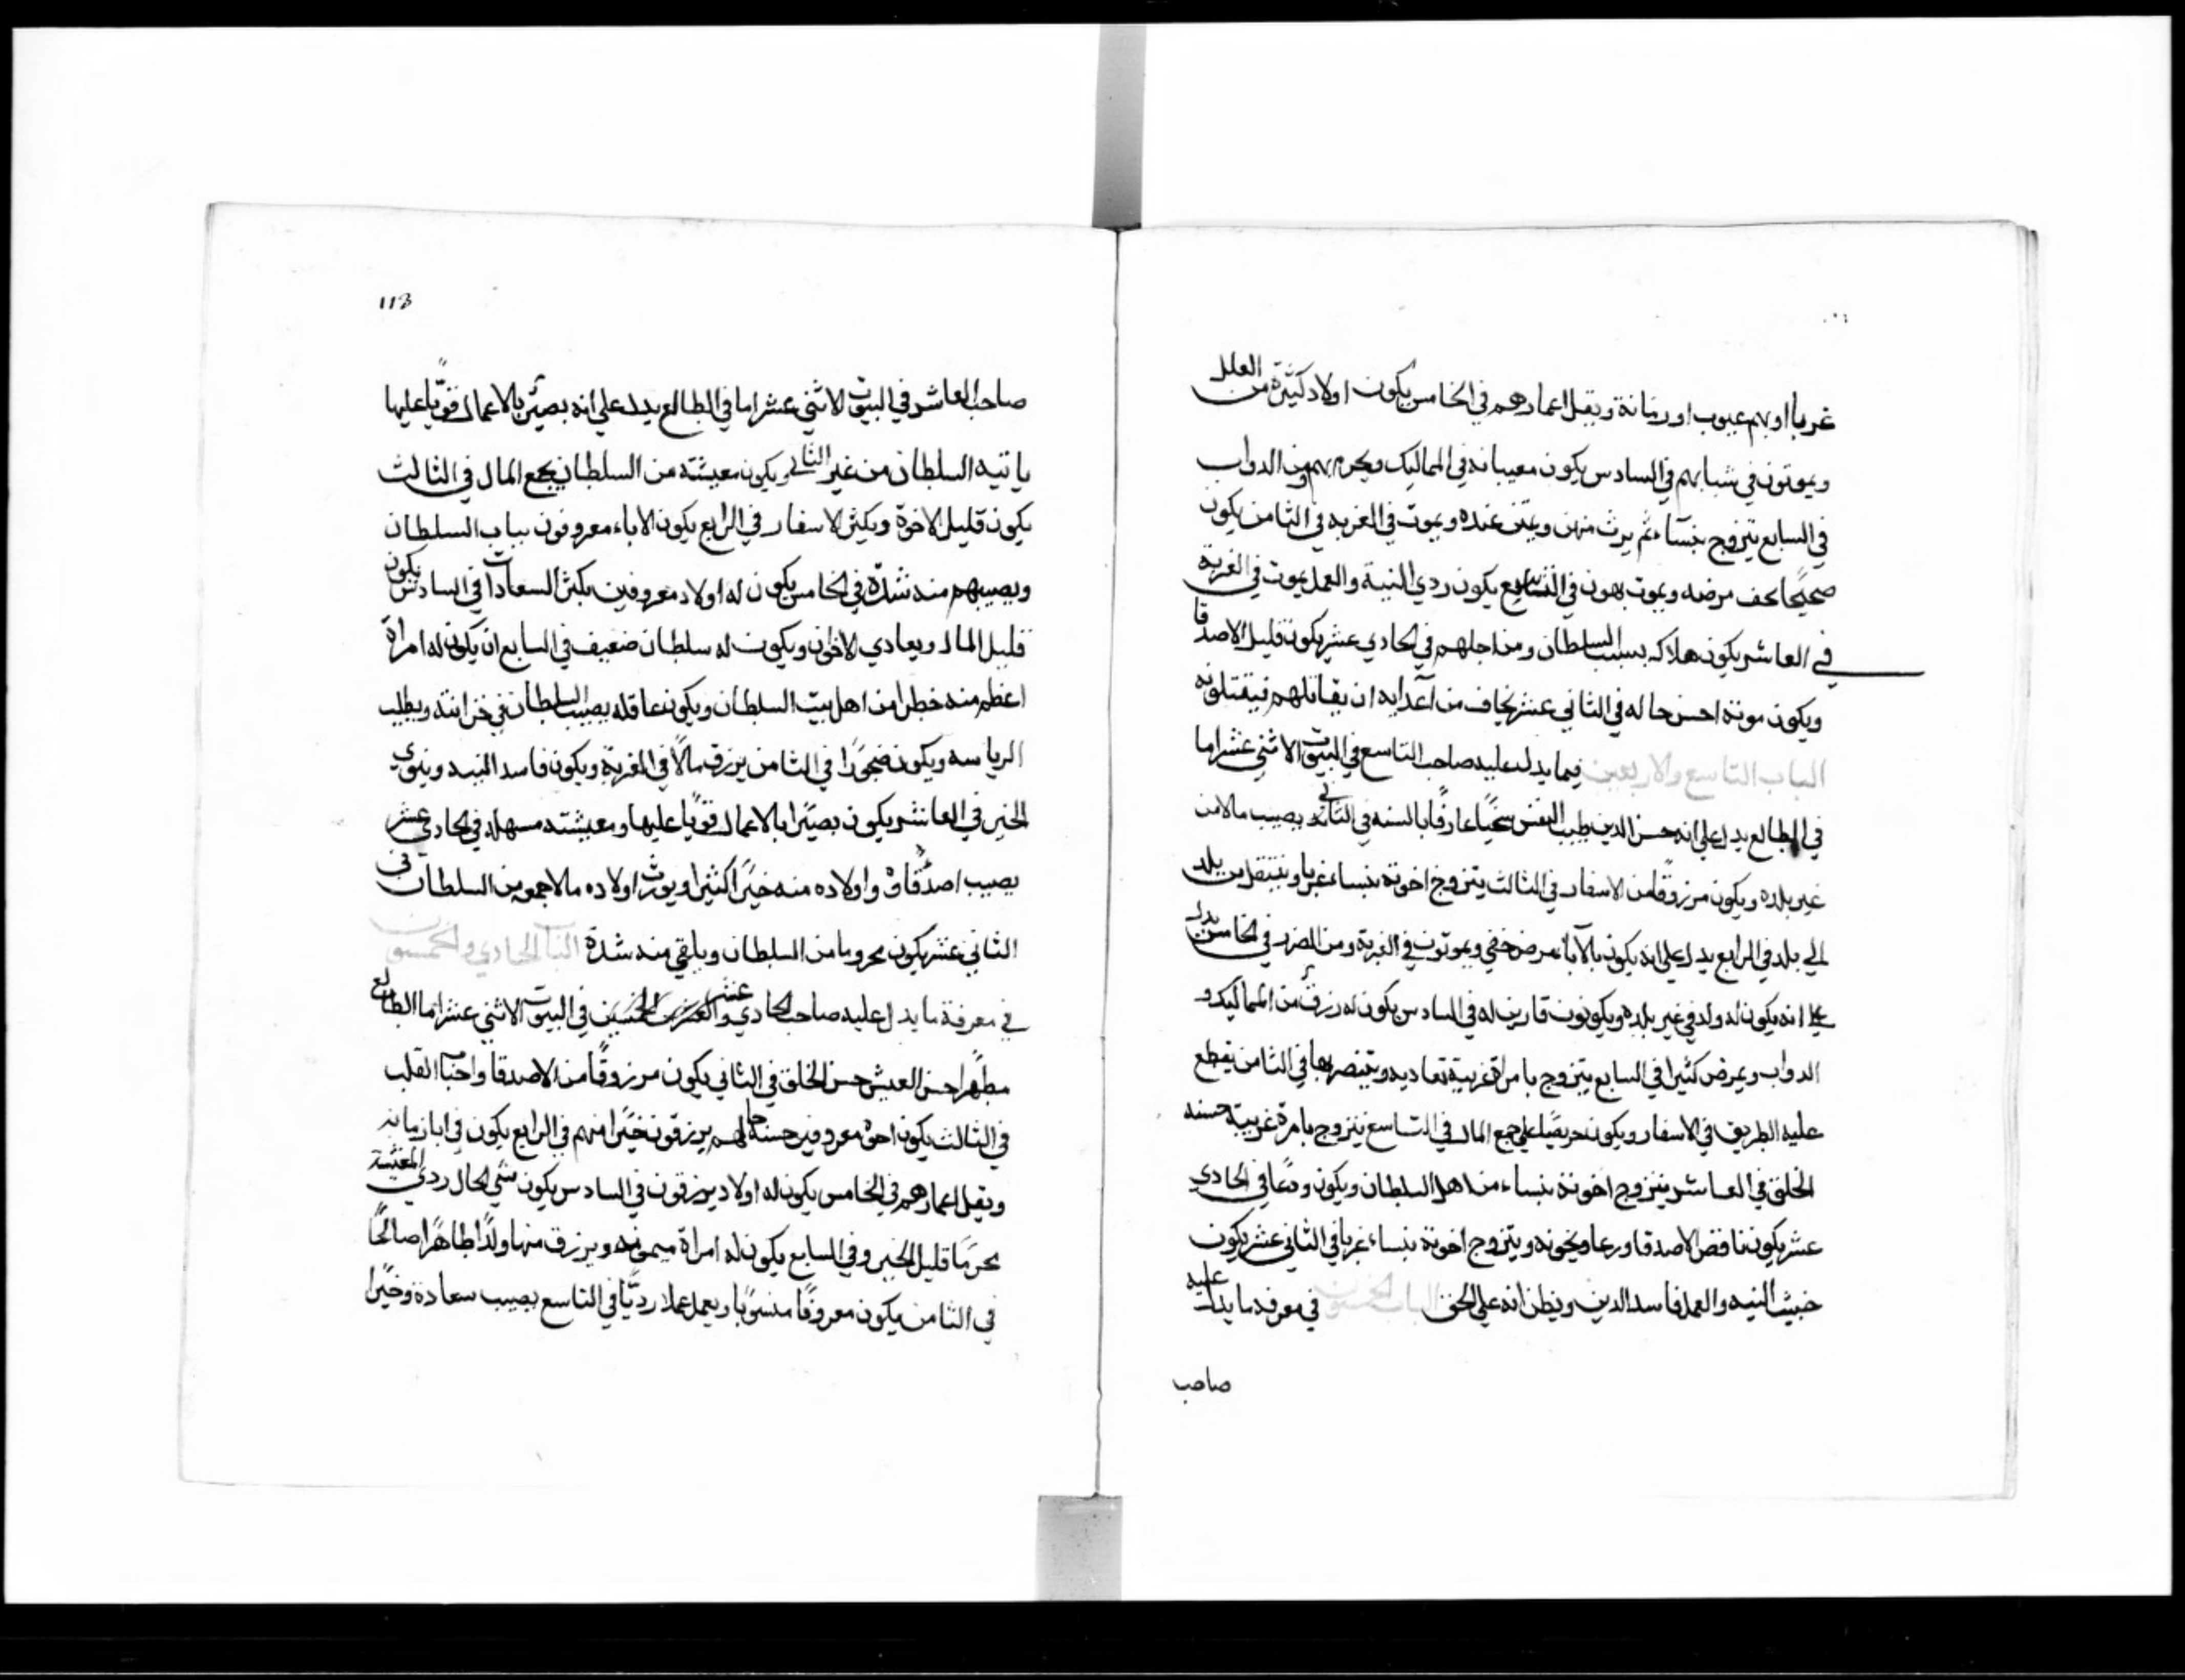 غربا او بهم عيوب او زمانة ويقل اعمارهم في الخامس يكون اولاد كثيرة من العلل
ويموتون في شبابهم في السادس يكون معيبا نه في المماليك ويحرم بهم ومن الدواب
في السابع يتزوج بنساء ثم يرث منهن ويمتن عنده ويموت في الغربه في الثامن يكون
صحيحا يخف مرضه ويموت بهون في التاسع يكون ردي النية والعمل يموت في الغربة
في العاشر يكون هلاكه بسبب السلطان ومن اجلهم في الحادي عشر يكون قليل الاصدقا
ويكون موته احسن حاله في الثاني عشر يخاف من اعدايه ان يقاتلهم فيقتلونه
الباب التاسع والاربعين فيما يدل عليه صاحب التاسع في البيوت الاثني عشر اما
في الطالع يدل على انه حسن الدين طيب النفس سخيا عارفا بالسنه في الثاني يصيب مالا من
غير بلده ويكون مرزوقا من الاسفار في الثالث يتزوج اخوته بنساء غربا وينتقل من بلد
الى بلد في الرابع يدل على انه يكون بالآباء مرض خفي ويموتون في الغربة ومن الضرر في الخامس يدل
على انه يكون له ولد في غير بلده ويكونون قارين له في السادس يكون له رزق من المماليك و
الدواب ويمرض كثيرا في السابع يتزوج بامراة غريبة تعاديه وينتصر بها في الثامن يقطع
عليه الطريق في الاسفار ويكون حريصا على جمع المال في التاسع يتزوج بامرة غريبة حسنه
الخلق في العاشر يتزوج اخوته بنساء من اهل السلطان ويكون ورعا في الحادي
عشر يكون ناقص الاصدقا وربما ويخونه ويتزوج اخوته بنساء غربا في الثاني عشر يكون
خبيث النيه والعمل فاسد الدين ويظن انه على الحق الباب الخمسون في معرفه ما يدل عليه
صاحب
113
صاحب العاشر في البيوت الاثني عشر اما في الطالع يدل على انه بصير بالاعمال قويا عليها
ياتيه السلطان من غير الثاني ويكون معيشته من السلطان يجمع المال في الثالث
يكون قليل الاخوة ويكثر الاسفار في الرابع يكون الاباء معروفون بباب السلطان
ويصيبهم منه شدة في الخامس يكون له اولاد معروفين بكثر السعادات في السادس يكون
قليل المال ويعادي الاخوان ويكون له سلطان ضعيف في السابع ان يكون له امراة
اعظم منه خطرا من اهل بيت السلطان ويكون عاقله يصيب السلطان في خزانته ويطلب
الرياسه ويكون ضجورا في الثامن يرزق مالا في الغربة ويكون فاسد النيه وينوي
الخير في العاشر يكون بصيرا بالاعمال قويا عليها ومعيشته سهله في الحادي عشر
يصيب اصدقاوه واولاده منه خيرا كثيرا ويورث اولاده مالا جموه من السلطان في
الثاني عشر يكون محروما من السلطان ويلقي منه شدة الباب الحادي والخمسون
في معرفة ما يدل عليه صاحب الحادي عشر في البيوت الاثني عشر اما الطالع
مطهرا حسن العيش حسن الخلق في الثاني يكون مرزوقا من الاصدقا واحبا القلب
في الثالث يكون اخوه معروفين حسنة حالهم يرزقون خيرا منهم في الرابع يكون في ابا زمانه
ويقل اعمارهم في الخامس يكون له اولاد يرزقون في السادس يكون سيي الحال ردي المعيشة
محرما قليل الخير وفي السابع يكون له امراة ميمونه ويرزق منها ولدا طاهرا صالحا
في الثامن يكون معروفا منسوبا ويعمل عملا رديا في التاسع يصيب سعادة وخيرا